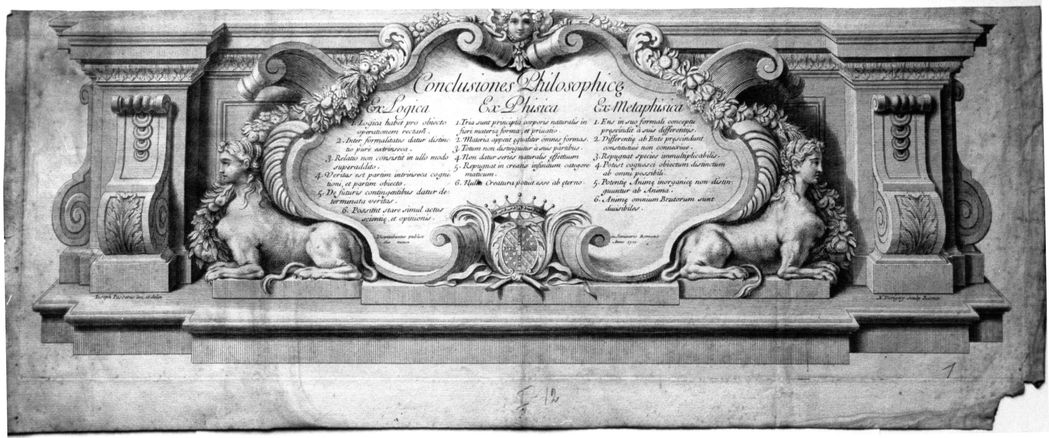 Conclusiones Philosophicę
Ex Logica
1. Logica habet pro obiecto
operationem rectam.
2. Inter formalitates datur distinc-
tio purè intrinseca.
3. Relatio non consistit in ullo modo
superaddito.
4. Veritas est partim intrinseca cogni
tioni, et partim obiecto.
5. De futuris contingentibus datur de-
terminata veritas.
6. Possunt stare simul actus
scientię, et opinionis.
Ex Phisica
1. Tria sunt principia corporis naturalis in
fieri materia forma, et priuatio.
2. Materia appetit equaliter omnes formas.
3. Totum non distinguitur à suis partibus.
4. Non datur series naturalis effectuum
5. Repugnat in creatis infinitum catagore
maticum.
6. Nulla Creatura potuit esse ab ęterno.
Ex Metaphisica
1. Ens in suo formali conceptu
pręscindit à suis differentijs.
2. Differentię ab Ente pręscindunt
constitutiuè non
3. Repugnat species immultiplicabilis.
4. Potest cognosci obiectum distinctum
ab omni possibili.
5. Potentię Animę inorganicę non distin
guuntur ab Anima.
6. Animę omnium Brutorum sunt
diuisibiles.
Disputabuntur publicè
in Seminario Romano
Anno
Ioseph Passarus inu. et delin.
N. Dorigny sculp. Romę
I 12
1